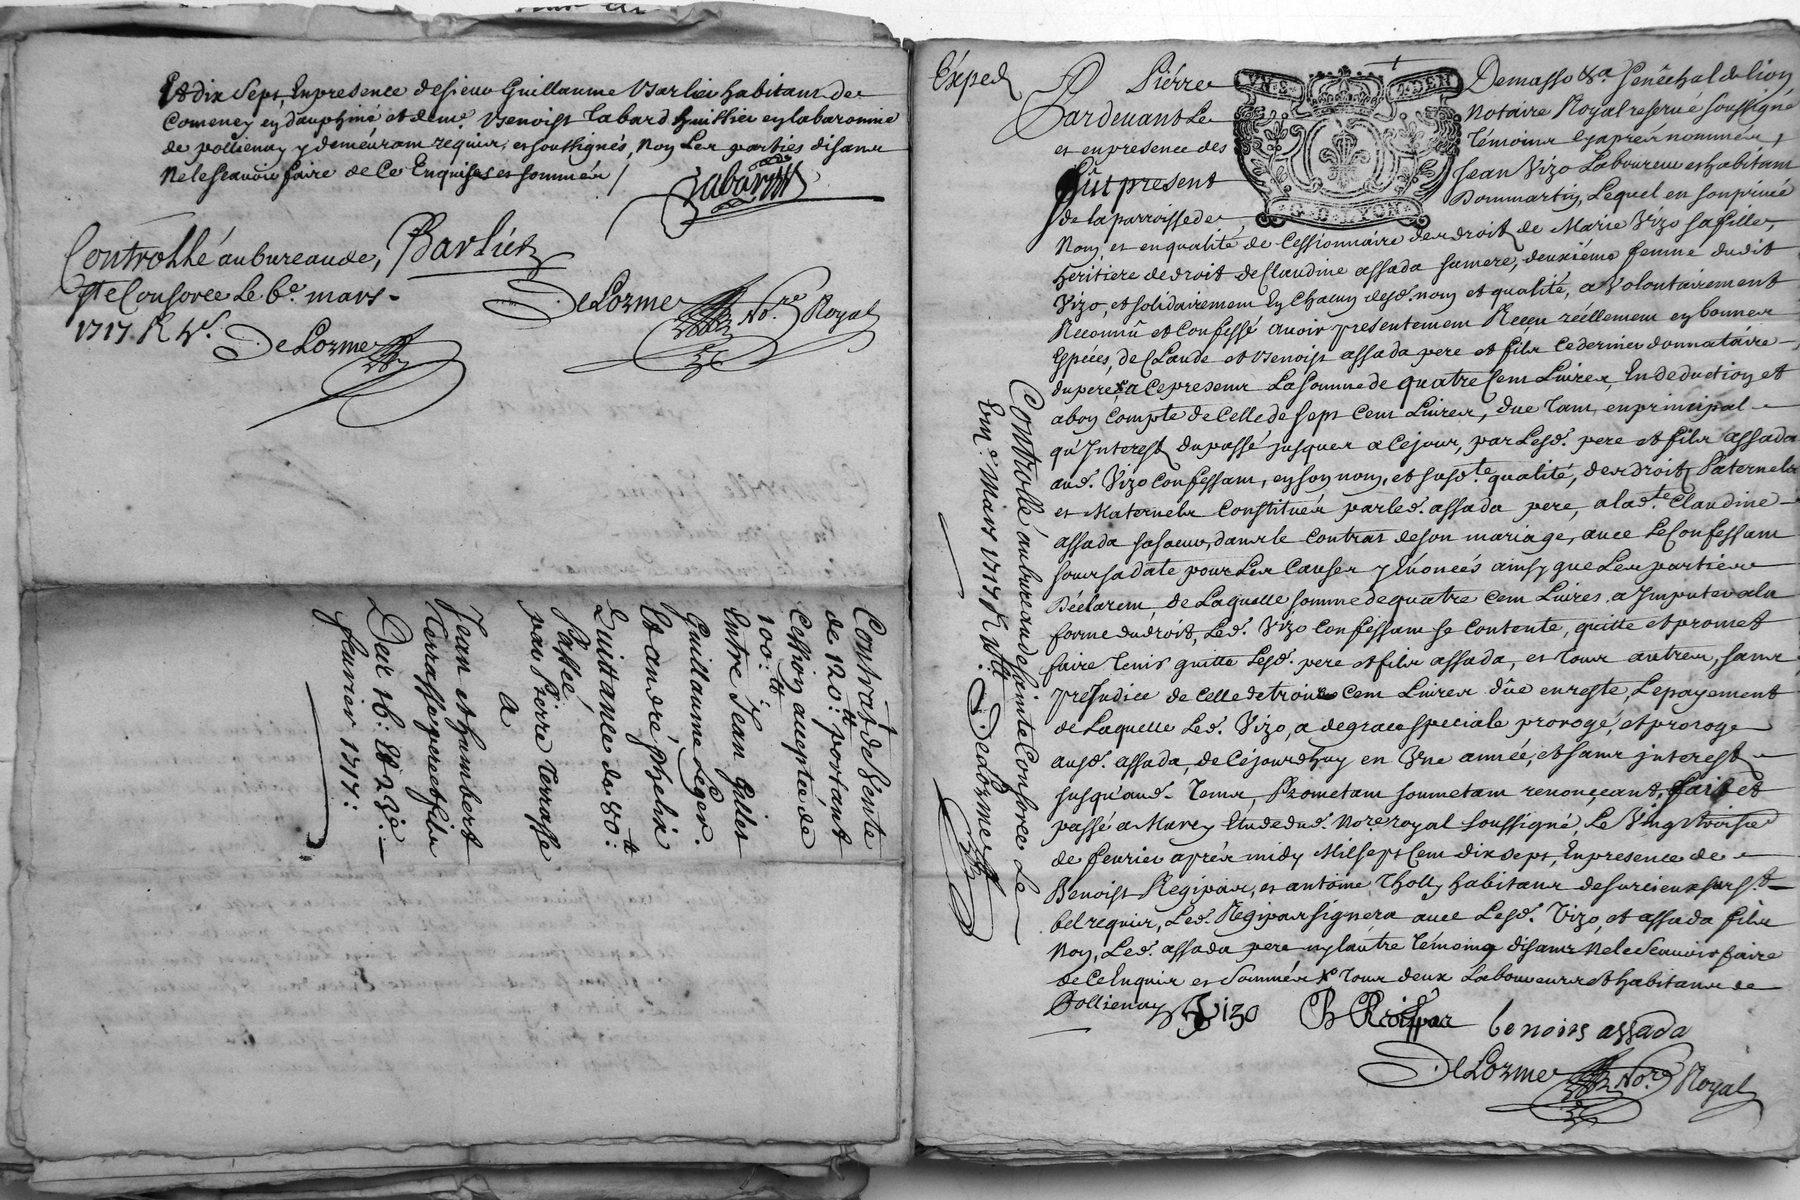 Et dix Sept, En presence de sieur Guillaume Barlier habitant de
Comeney en dauphiné et de me. Benoist Tabard huissier en la baronnie
de pollienay y demeurant requis, et soussignés, Non Les parties disant
Ne le scavoir faire de Ce Enquises et sommées /
Tabard
Controllé au bureau de, Barlier
Ste Consorce Le 6e. mars
1717. R
DeLorme
DeLorme No.re Royal
Contrat de Vente
de 120.tt portant
Cession acceptée de
100.tt
Entre Jean Gilles
Guillaume Leger
Et andré phelix
Quittance de 80.tt
Passée
par Pierre Terrasse
a
Jean et humbert
Terrasse pere et fils
Des 16: & 23e.
feuvrier 1717:
Exped
Pierre Demasso &a Senéchal de lion
Pardevant Le Notaire Royal reservé soussigné
et en presence des Témoins Cy aprés nommés,
fût present Jean Vizo Laboureur et habitant
de la parroisse de Dommartin, Lequel en son privé
Nom, et en qualité de Cessionnaire des droits de Marie Vizo sa fille,
heritiere de droit de Claudine assada sa mere, deuxiéme femme dudit
Vizo, et solidairement En Chacun desd. nom et qualité, a Volontairement
Reconnû et Confessé avoir presentement Receu réellement en bonnes
Especes, de Claude et Benoist assada pere et fils Ce dernier donnataire
du pere, a Ce present La Somme de quatre Cent Livres, En deduction et
a bon Compte de Celle de Sept Cent Livres, due Tant en principal
qu'Interest du passé jusques a Ce jour, par Lesd. pere et fils assada
aud. Vizo Confessant, en son nom, et susd.te qualité, des droits Paternels
et Maternels Constitués par led. assada pere, a lad.te Claudine
assada sa soeur, dans le Contrat de son mariage, avec Le Confessant
sous sa date pour Les Causes y Enoncés ainsy que Les parties
Déclarent, de Laquelle somme de quatre Cent Livres a Imputer a la
forme du droit, Led. Vizo Confessant se Contente, quitte et promet
faire Tenir quitte Lesd. pere et fils assada, et Tous autres, sans
prejudice de Celle de trois Cent Livres dûe en reste, Le payement
de Laquelle Led. Vizo, a de grace speciale prorogé, et proroge
ausd. assada, de Céjourdhuy en Vne année, et sans interest
jusqu'aud. Tems, Promettant soumettant renonçeant, fait et
passé a Marcy Etude dud. No.re royal soussigné, Le Vingtroisie
de feuvrier aprés midy Mil sept Cent dix sept, En presence de
Benoist Regipas, et antoine Tholly habitans de Sarcieux sur St.
bel requis, Led. Regipas signera avec Lesd. Vizo, et assada fils
Non, Led. assada pere ny lautre Témoing disant Ne le Scavoir faire
de Ce Enquis et Sommés Tous deux Laboureurs et habitans de
Pollienay
Vizo
benoits assada
DeLorme No.re Royal
Controllé au bureau de Sainte Consorce Le
Six.e Mars 1717 R
DeLorme
G. D. LYON